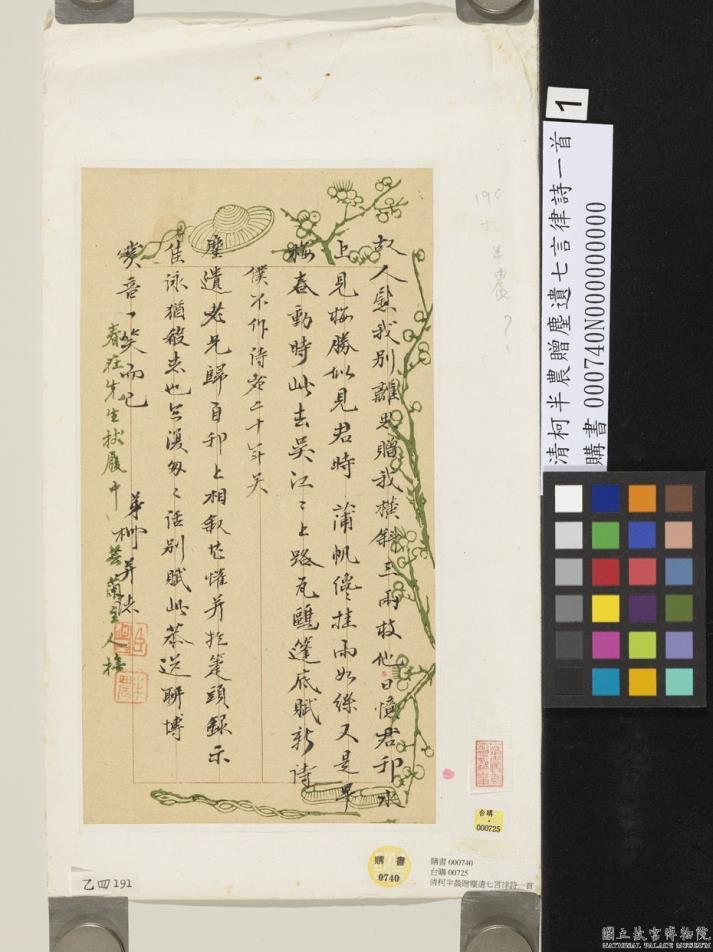 故人慰我別離思贈我橫斜三兩枝他日憶君邗水
上見梅勝似見君時蒲帆儘挂雨如絲又是早
梅春動時此去吳江江上路瓦甌篷底賦新詩
僕不作詩者二十年矣
塵遺老兄歸自邗上相敘甚懽并於箑頭錄示
佳詠猶殷其也匆匆話別賦此恭送聊博
一笑而已
弟柯并誌
春在先生杖履中
芸蘭主人
1
清柯半農贈塵遺七言律詩一首
購書 000740N000000000
190
半農
台購
000725
購書
0740
購書 000740
台購 00725
清柯半農贈塵遺七言律詩一首
乙四191
國立故宮博物院
NATIONAL PALACE MUSEUM